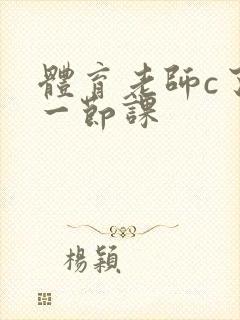 體育老師c了
一節課
楊穎